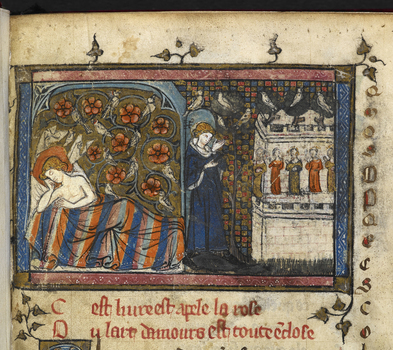 C est liure est apele la rose
D u lart damours est toute ēclose